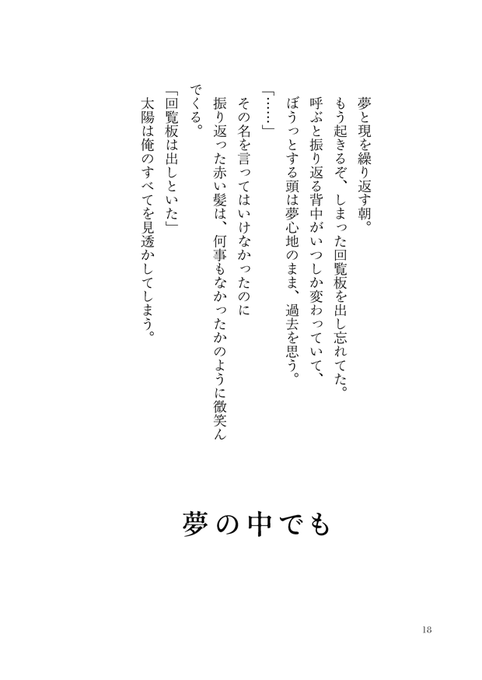 夢と現を繰り返す朝。
もう起きるぞ、しまった回覧板を出し忘れてた。
呼ぶと振り返る背中がいつしか変わっていて、
ぼうっとする頭は夢心地のまま、過去を思う。
「……」
その名を言ってはいけなかったのに
振り返った赤い髪は、何事もなかったかのように微笑ん
でくる。
「回覧板は出しといた」
太陽は俺のすべてを見透かしてしまう。
夢の中でも
18